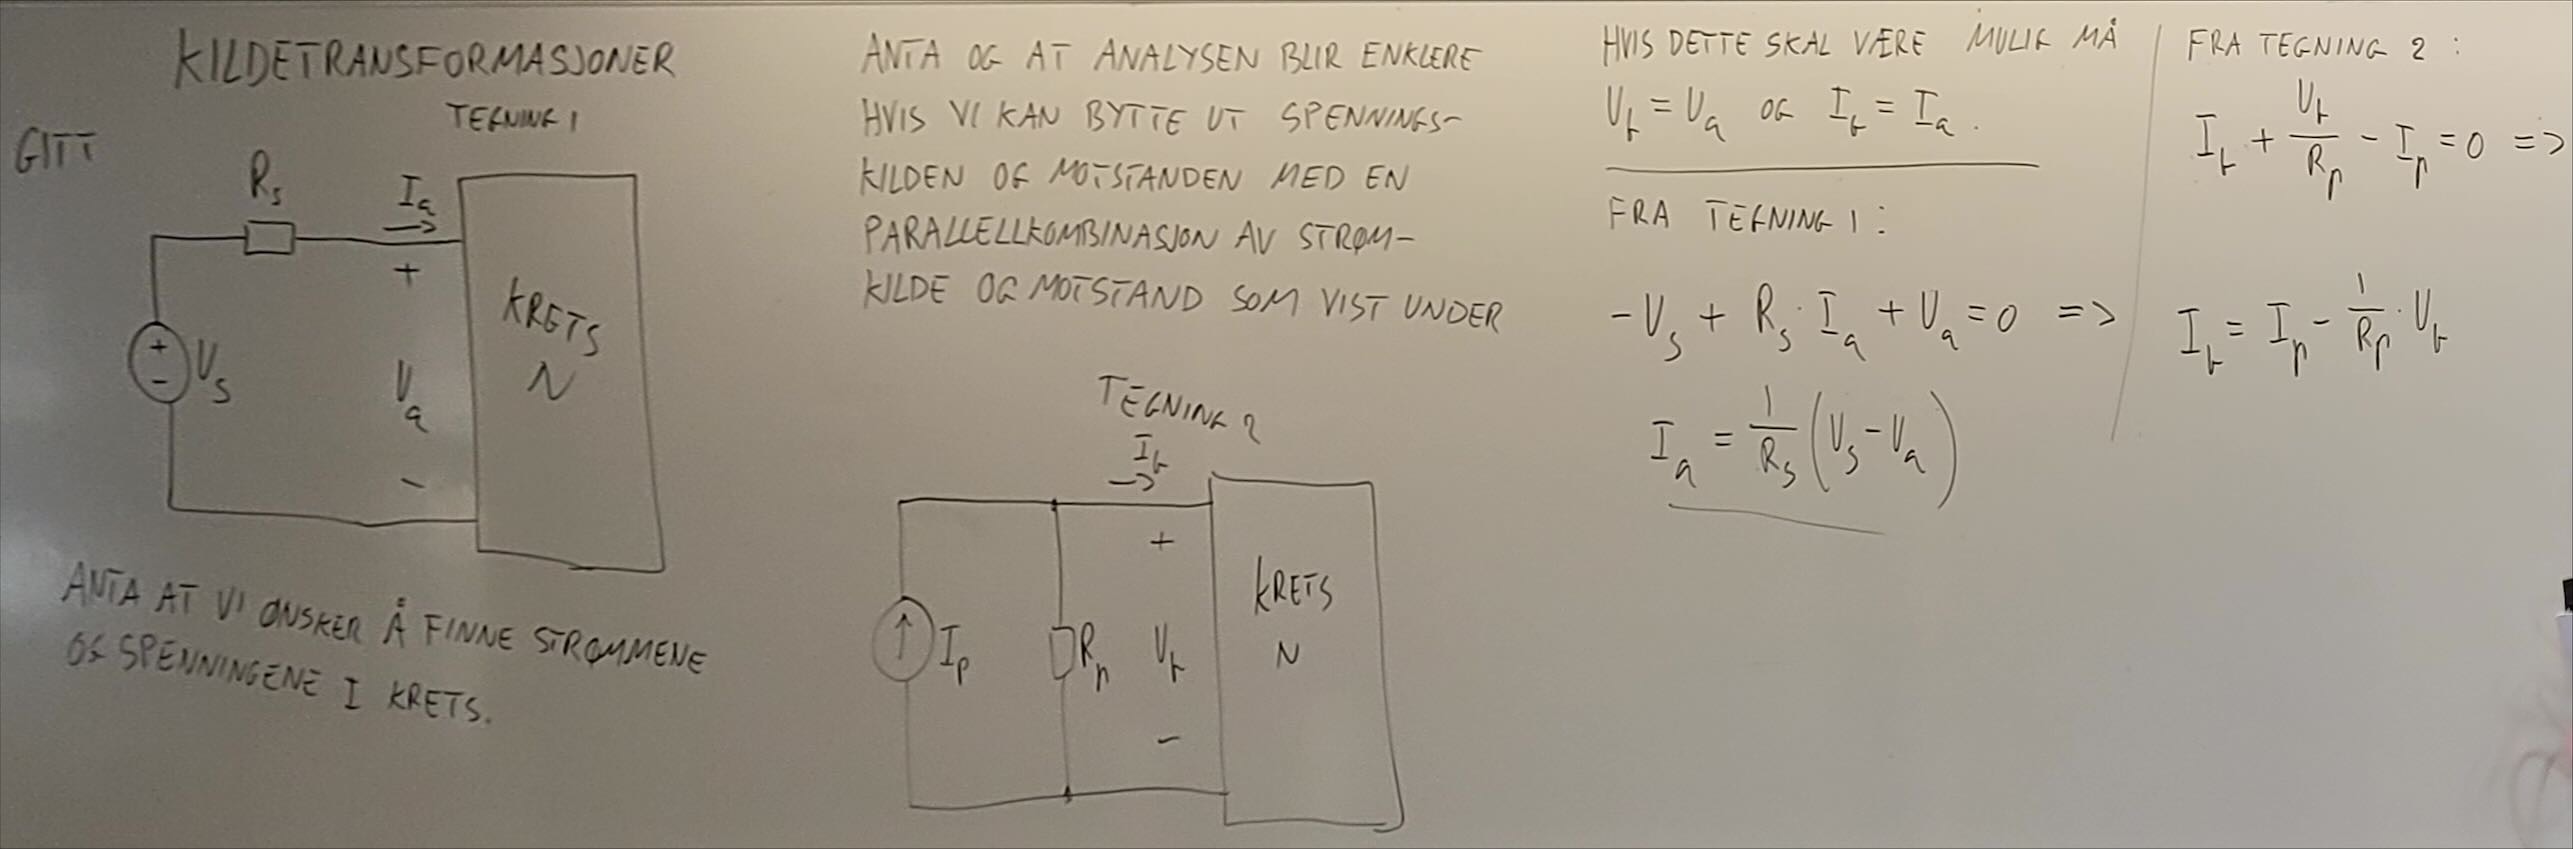 KILDETRANSFORMASJONER
TEGNING 1
GITT
Rs
Ia
+
KRETS
N
+
-
Vs
Va
-
ANTA AT VI ØNSKER Å FINNE STRØMMENE
OG SPENNINGENE I KRETS.
ANTA OG AT ANALYSEN BLIR ENKLERE
HVIS VI KAN BYTTE UT SPENNINGS-
KILDEN OG MOTSTANDEN MED EN
PARALLELLKOMBINASJON AV STRØM-
KILDE OG MOTSTAND SOM VIST UNDER
TEGNING 2
Ib
+
KRETS
N
Ip
Rp
Vb
-
HVIS DETTE SKAL VÆRE MULIG MÅ
Vb = Va OG Ib = Ia.
FRA TEGNING 1:
-Vs + Rs · Ia + Va = 0 =>
Ia = 1/Rs (Vs - Va)
FRA TEGNING 2:
Ib + Vb/Rp - Ip = 0 =>
Ib = Ip - 1/Rp · Vb